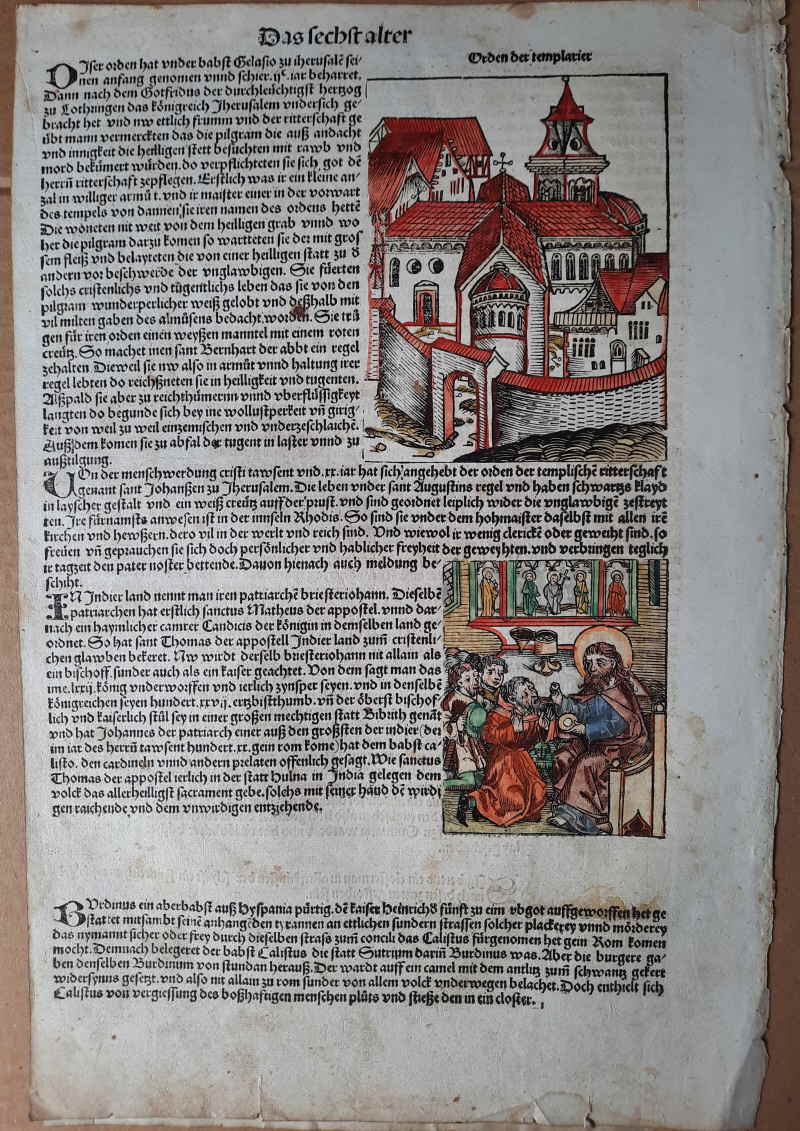 Das sechst alter
Orden der templarier
DIser orden hat vnder babst Gelasio zu iherusalē sei-
nen anfang genomen vnnd schier .ijᶜ. iar beharret.
Dann nach dem Gotfridus der durchleüchtigst hertzog
zu Lothringen das königreich Jherusalem vndersich ge-
bracht het vnd nw ettlich frumm vnd der ritterschaft ge
übt mann vermerckten das die pilgram die auß andacht
vnd innigkeit die heilligen stett besuchten mit rawb vnd
mord bekümert würden. do verpflichteten sie sich got dē
herrñ ritterschaft zepflegen. Erstlich was ir ein kleine an-
zal in williger armůt. vnd ir maister einer in der vorwart
des tempels von dannen sie iren namen des ordens hettē
Die woneten nit weit von dem heilligen grab vnnd wo
her die pilgram darzu komen so wartteten sie der mit gros
sem fleiß vnd belayteten die von einer heilligen statt zu ð
andern vor beschwerde der vnglawbigen. Sie füerten
solchs cristenlichs vnd tügentlichs leben das sie von den
pilgram wunderperlicher weiß gelobt vnd deßhalb mit
vil milten gaben des almůsens bedacht worden. Sie trů
gen für iren orden einen weyßen manntel mit einem roten
creütz. So machet inen sant Bernhart der abbt ein regel
zehalten Dieweil sie nw also in armůt vnnd haltung irer
regel lebten do reichßneten sie in heilligkeit vnd tugenten.
Alßpald sie aber zu reichthümerin vnnd vberflüssigkeyt
langten do begunde sich bey ine wollustperkeit vñ girig-
keit von weil zu weil einzemischen vnd vnderzeschlaichē.
Außdem komen sie zu abfal der tugent in laster vnnd zu
außtilgung.
VOn der menschwerdung cristi tawsent vnd .xx. iar hat sich angehebt der orden der templischē ritterschaft
genant sant Johanßen zu Jherusalem. Die leben vnder sant Augustins regel vnd haben schwartzs klayd
in layscher gestalt vnd ein weiß creütz auff der prust. vnd sind geordnet leiplich wider die vnglawbigē zestreyt
ten. Jre fürnamsts anwesen ist in der innseln Rhodis. So sind sie vnder dem hohmaister daselbst mit allen irē
kirchen vnd hewßern. dero vil in der werlt vnd reich sind. Vnd wiewol ir wenig clericke oder geweiht sind. so
freüen vñ geprauchen sie sich doch persönlicher vnd hablicher freyheit der geweyhten. vnd verbringen teglich
ir tagzeit den pater noster bettende. Dauon hienach auch meldung be-
schiht.
IN Jndier land nennt man iren patriarchē briesteriohann. Dieselben
patriarchen hat erstlich sanctus Matheus der appostel. vnnd dar-
nach ein haymlicher camrer Candicis der königin in demselben land ge-
ordnet. So hat sant Thomas der appostell Jndier land zum cristenli-
chen glawben bekeret. Nw wirdt derselb briesteriohann nit allain als
ein bischoff. sunder auch als ein kaiser geachtet. Von dem sagt man das
ime .lxxij. könig vnderworffen vnd ierlich zynsper seyen. vnd in denselbē
königreichen seyen hundert .xxvij. ertzbistthumb. vñ der öberst bischof
lich vnd kaiserlich stůl sey in einer großen mechtigen statt Bibrith genāt
vnd hat Johannes der patriarch einer auß den größten der indier (der
im iar des herrñ tawsent hundert .xx. gein rom kome) hat dem babst ca-
listo. den cardineln vnnd andern prelaten offenlich gesagt. Wie sanctus
Thomas der appostel ierlich in der statt Hulna in Jndia gelegen dem
volck das allerheilligst sacrament gebe. solchs mit seiner hand dē wirdi
gen raichende vnd dem vnwirdigen entziehende.
BVrdinus ein aberbabst auß Hyspania pürtig. dē kaiser Heinrichð fünft zu eim abgot auffgeworffen het ge
stattet mitsambt seinē anhangðen tyrannen an ettlichen sundern strassen solcher plackerey vnnd mörderey
das nymannt sicher oder frey durch dieselben straß zum concili das Calistus fürgenomen het gein Rom komen
mocht. Demnach belegeret der babst Calistus die statt Sutrium darin Burdinus was. Aber die burgere ga-
ben denselben Burdinum von stundan herauß. Der wardt auff ein camel mit dem antlitz zum schwantz gekert
widersynns gesetzt. vnd also nit allain zu rom sunder von allem volck vnderwegen belachet. Doch enthielt sich
Calistus von vergiessung des boßhaftigen menschen plůts vnd stieße den in ein closter.